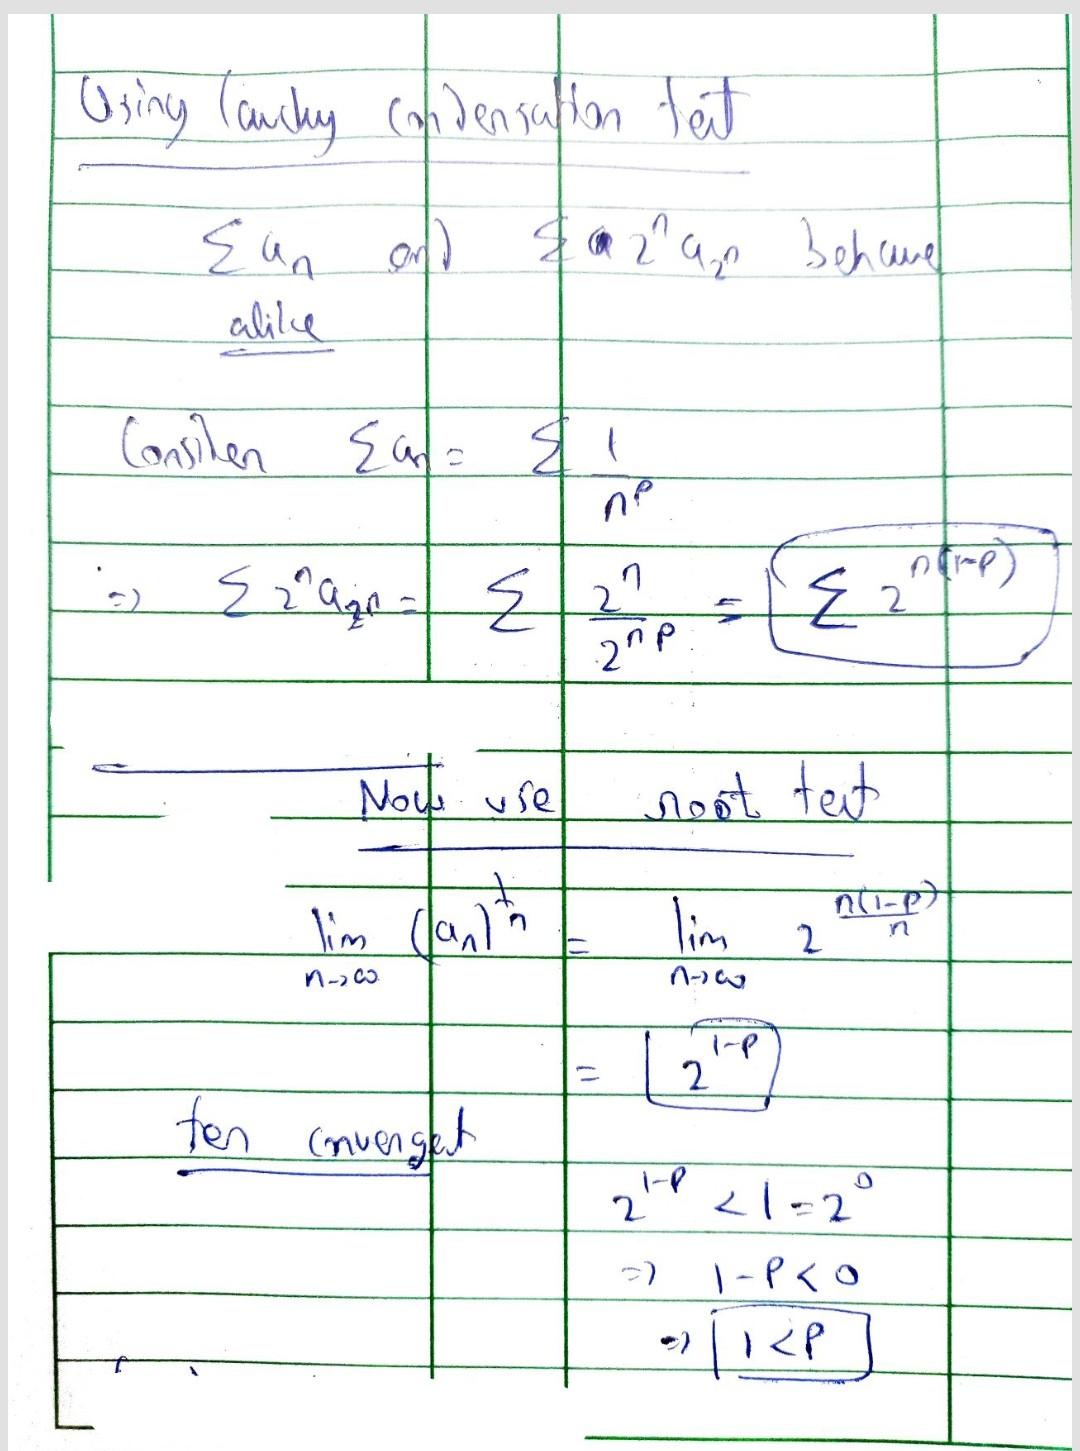 Using Cauchy Condensation test
Σ aₙ and Σ 2ⁿ a₂ⁿ behave
alike
Consider Σ aₙ = Σ 1/nᵖ
=> Σ 2ⁿ a₂ⁿ = Σ 2ⁿ/2ⁿᵖ = Σ 2^n(1-p)
Now use root test
lim n→∞ (aₙ)^1/n = lim n→∞ 2^n(1-p)/n
= 2^1-p
for converget
2^1-p < 1 = 2⁰
=> 1-p < 0
=> 1 < p